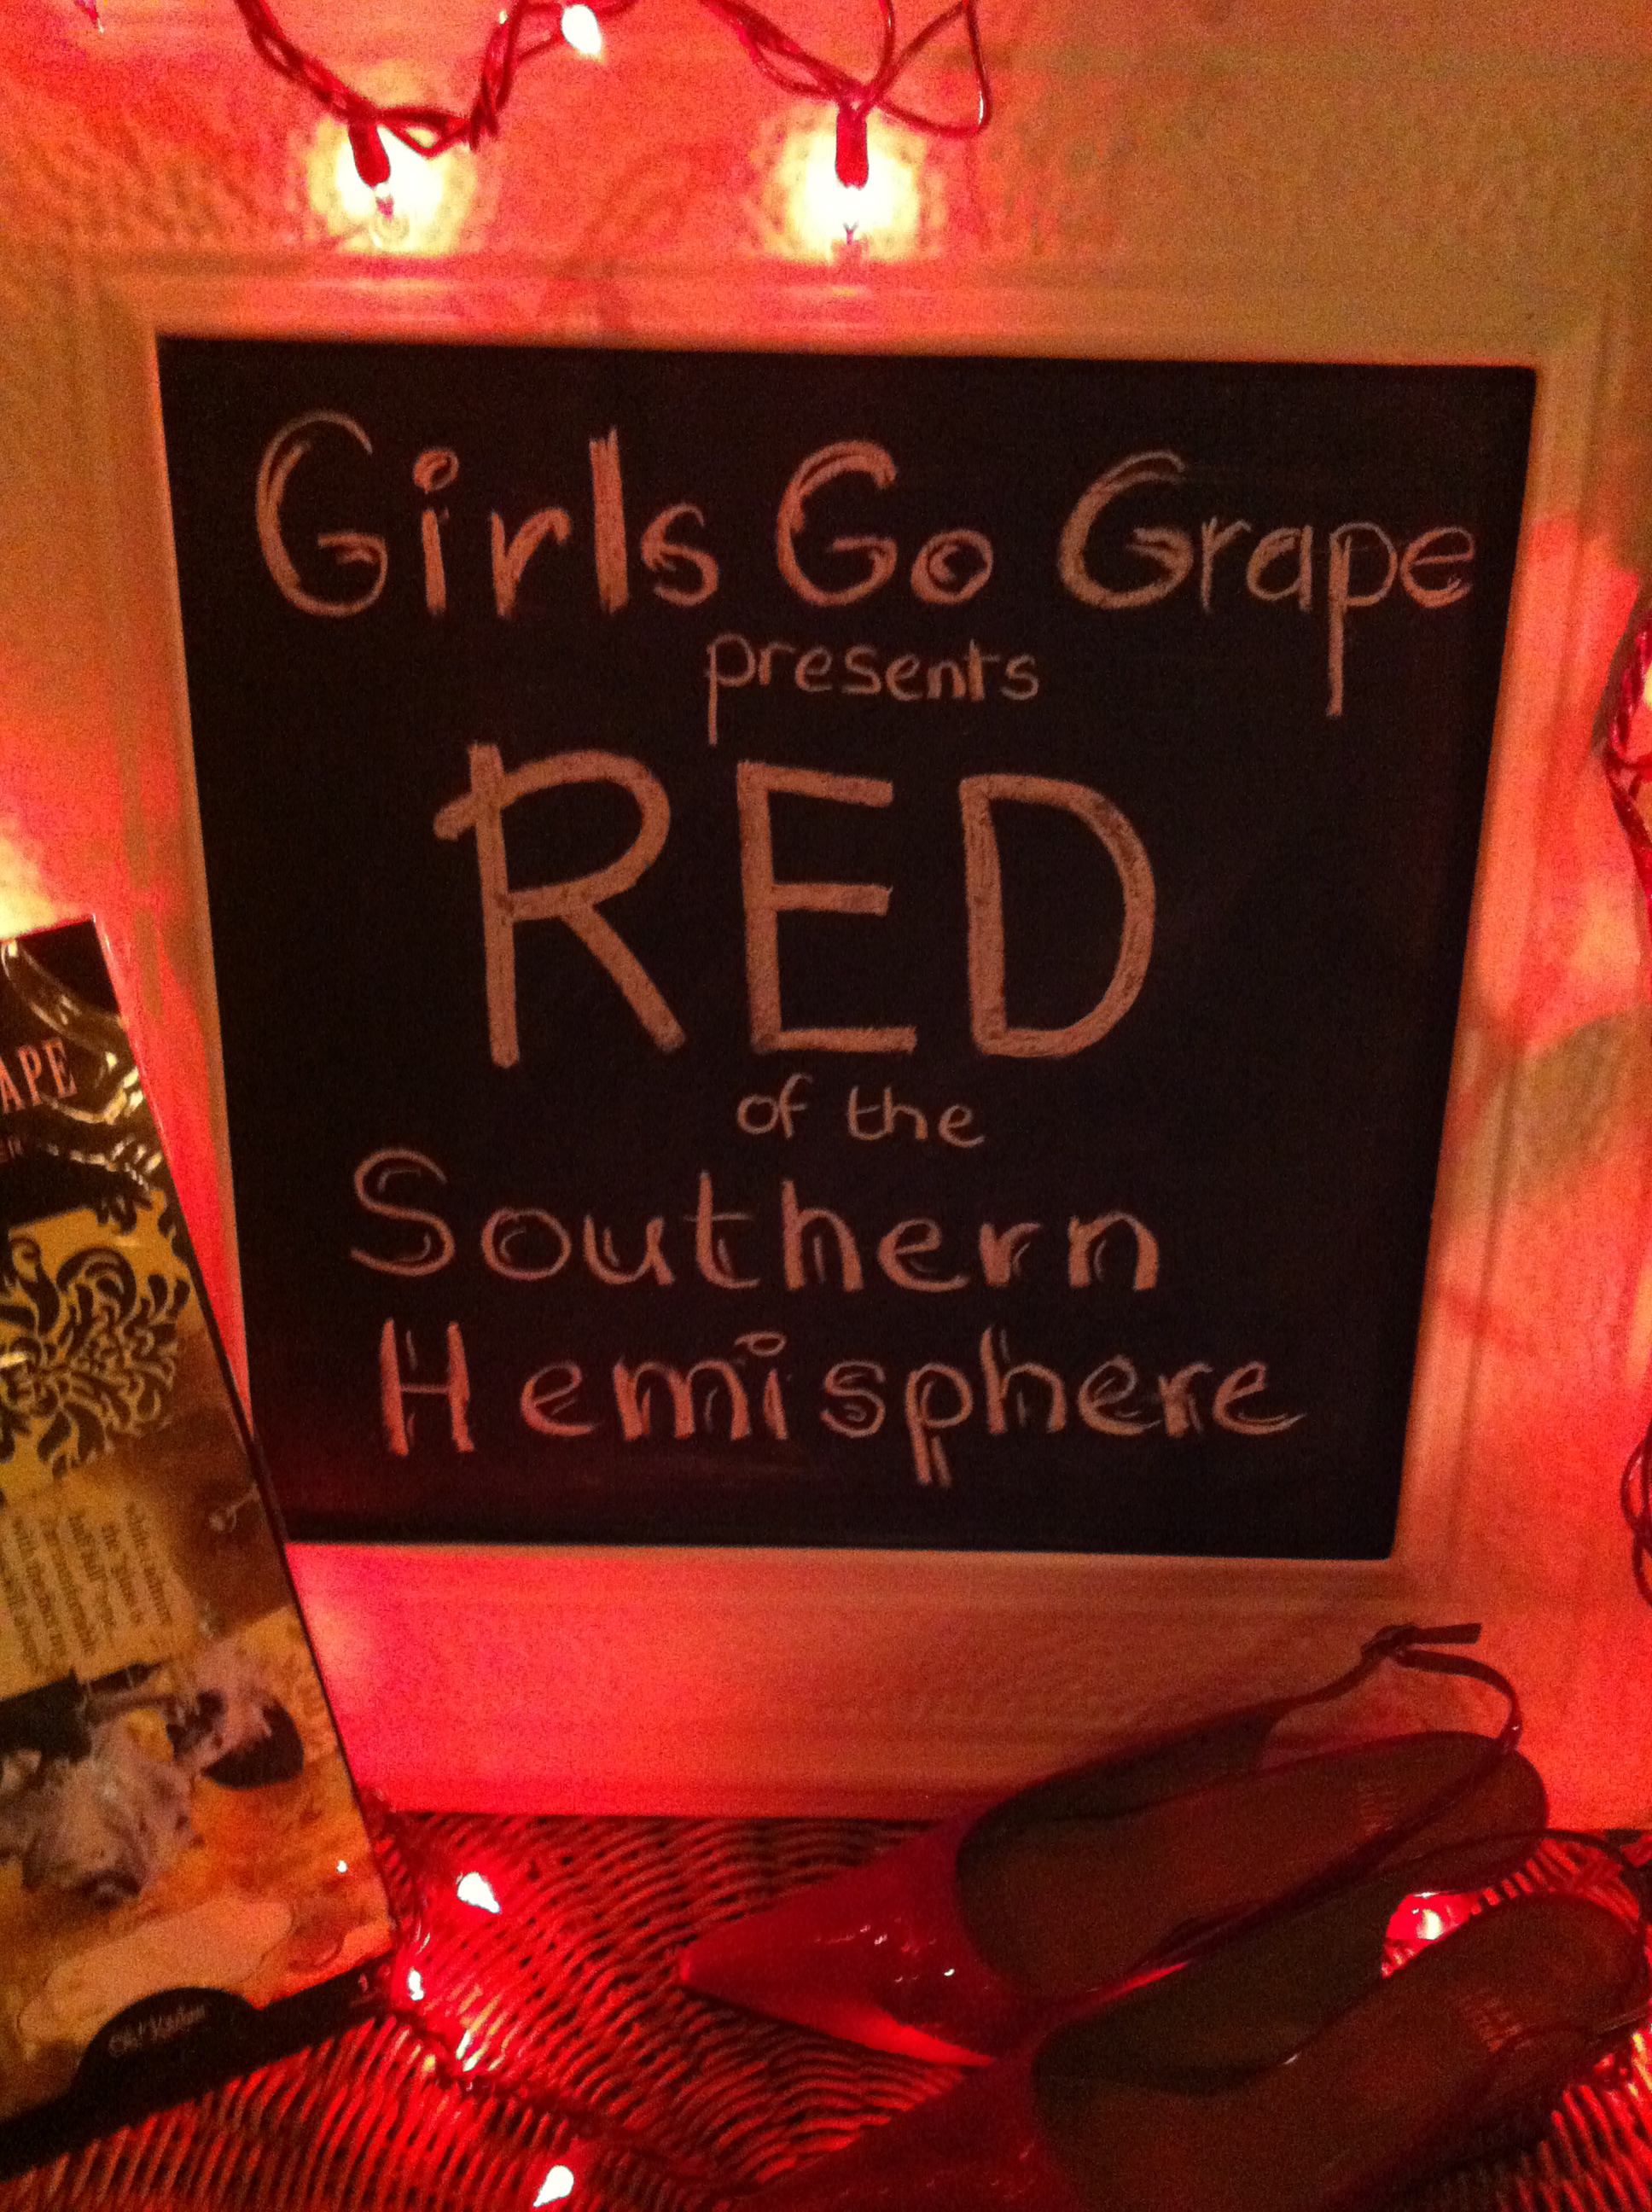 Girls Go Grape
presents
RED
of the
Southern
Hemisphere
APE